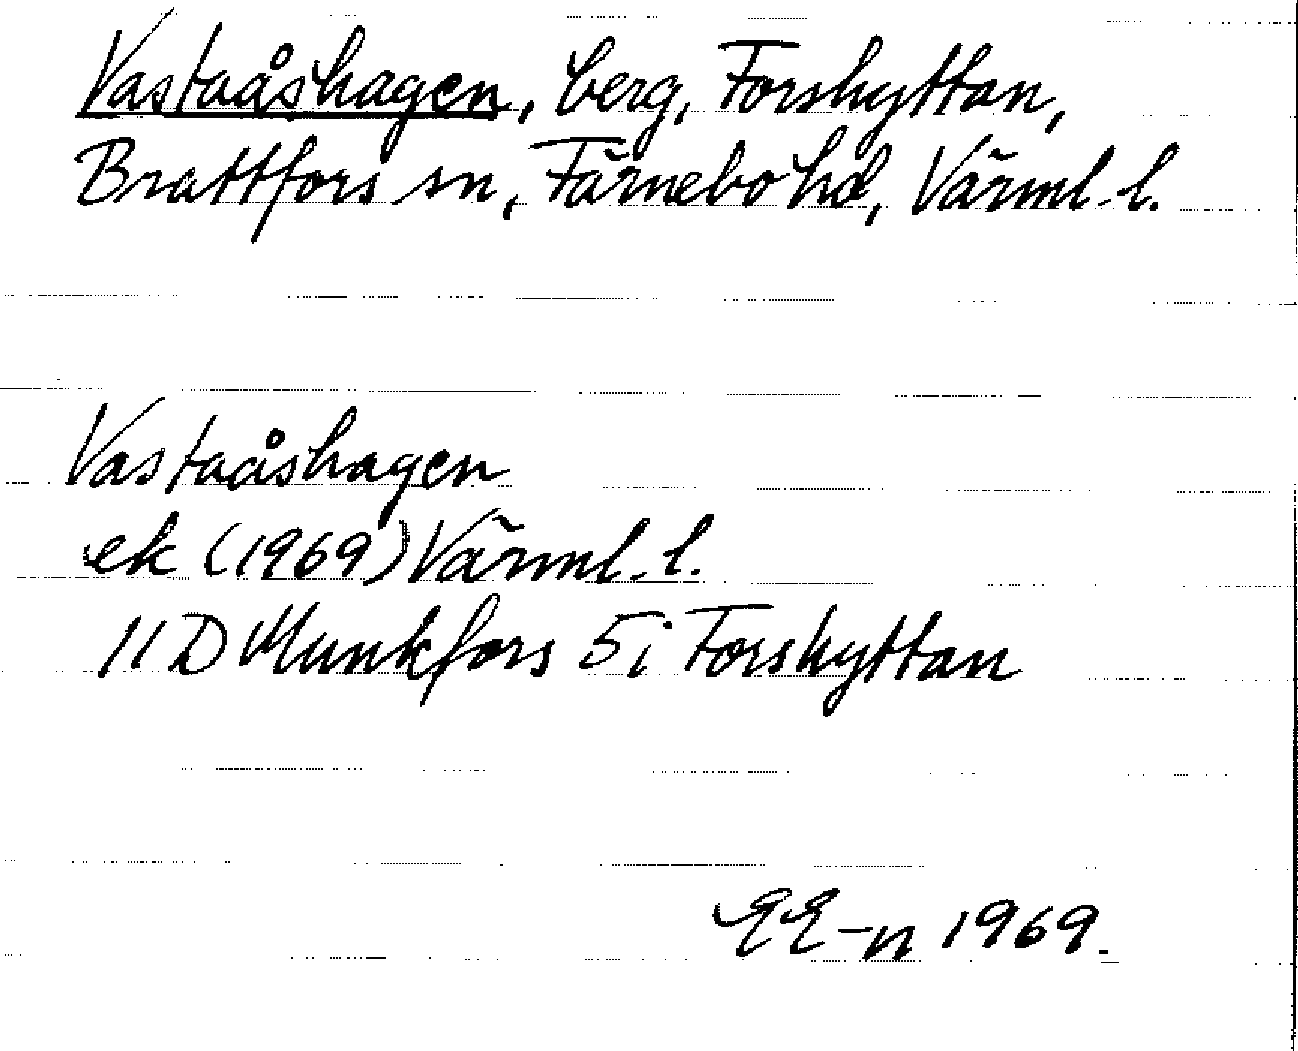 Vastaåshagen, berg, Forshyttan,
Brattfors sn, Färnebo hd, Värml. l.
Vastaåshagen
ek (1969) Värml. l.
11D Munkfors 5i Forshyttan
EE-n 1969.